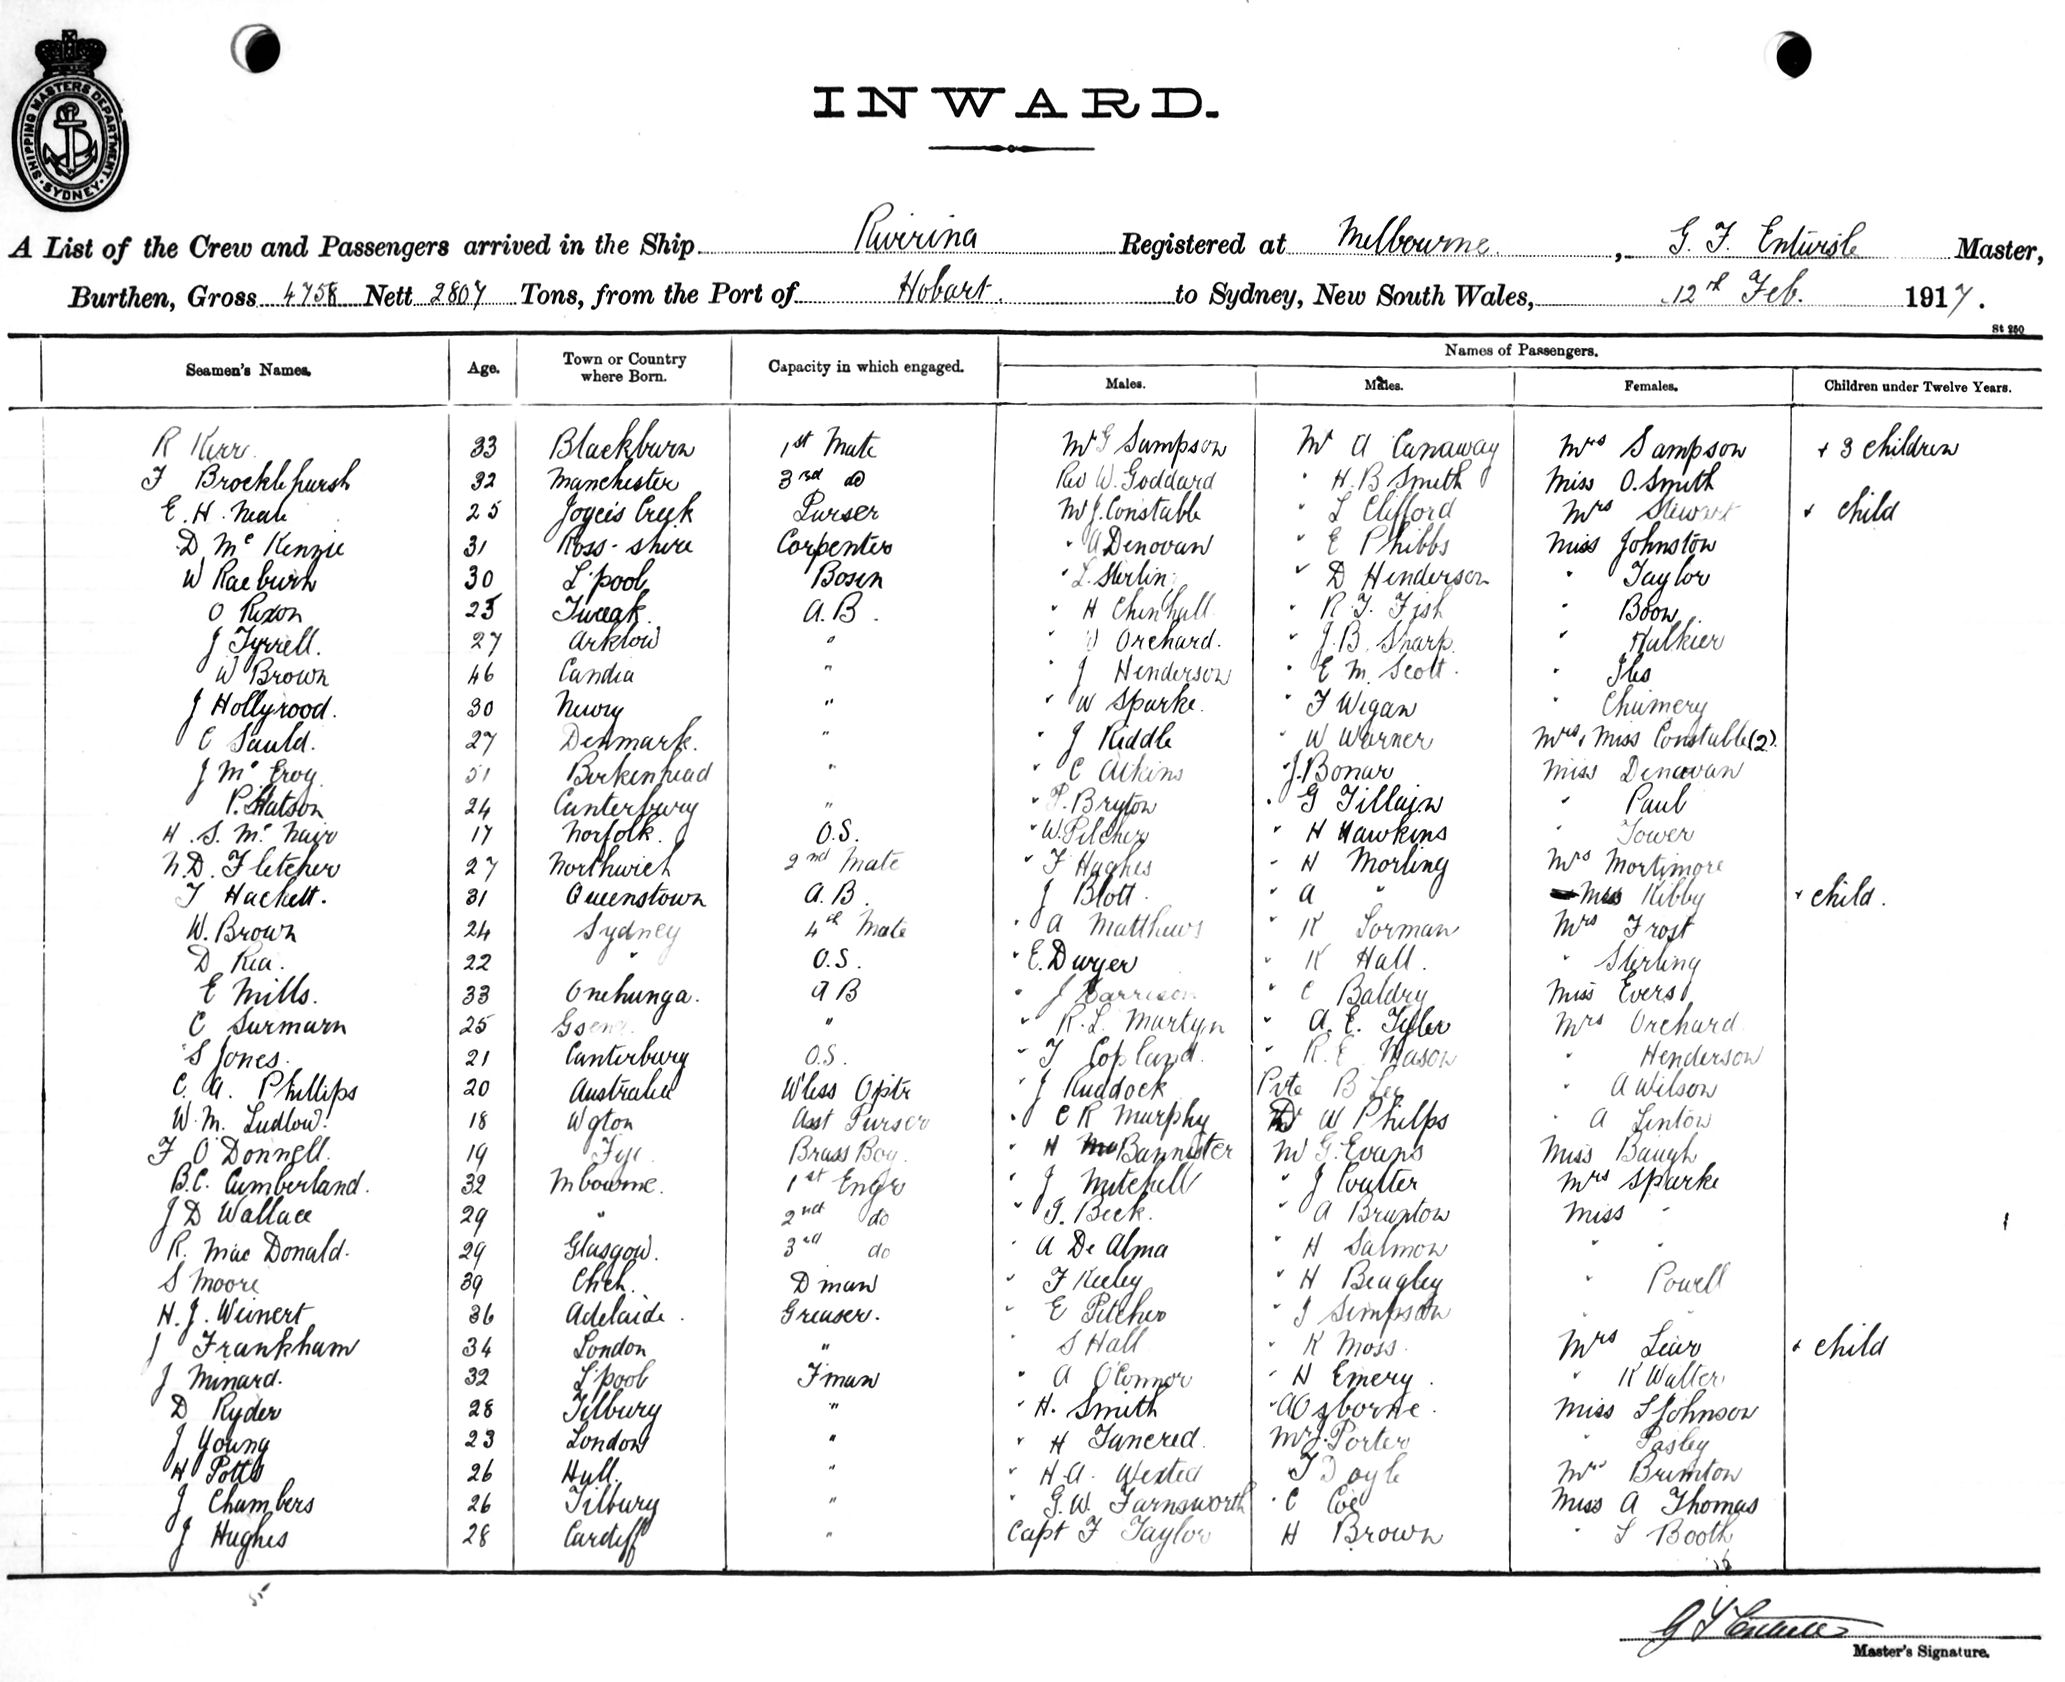 SHIPPING MASTERS DEPARTMENT
SYDNEY
INWARD.
A List of the Crew and Passengers arrived in the Ship Riverina Registered at Melbourne, G. F. Entwisle Master,
Burthen, Gross 4758 Nett 2807 Tons, from the Port of Hobart. to Sydney, New South Wales, 12th Feb. 1917.
St 250
Seamen's Names. Age. Town or Country where Born. Capacity in which engaged. Names of Passengers.
Males. Males. Females. Children under Twelve Years.
R Kerr 33 Blackburn 1st Mate Mr G Sampson Mr A Canaway Mrs Sampson + 3 children
F Brocklehursh 32 Manchester 3rd do Rev W. Goddard " H. B Smith Miss O. Smith
E. H. Neale 25 Joyces Creek Purser Mr J. Constable " L Clifford Mrs Stewart + child
D McKenzie 31 Ross-shire Carpenter " A Denovan " E Phibbs Miss Johnston
W Raeburn 30 L'pool Bosen " L. Sterlin " D Henderson " Taylor
O Rixon 25 A.B. " H Chinhall " R. T. Fish " Boon
J Tyrrell. 27 Arklow " " Orchard. " J. B. Sharp. "
W Brown 46 Candia " " J Henderson " E M. Scott. " Iles
J Hollyrood. 30 Newry " " W Sparke. " F Wigan "
C Sauld. 27 Denmark. " " J Riddle " W Warner Mrs, Miss Constable (2)
J McEvoy 51 Birkenhead " " C Atkins J. Bonar Miss Denovan
P. Watson 24 Canterbury " " P. Bryton " G " Paul
H. S. McNair 17 Norfolk. O.S. " W. Pilcher " H Hawkins " Tower
N. D. Fletcher 27 Northwich 2nd Mate " F Hughes " H Morling Mrs Mortimore
T Hackett. 31 Queenstown A.B. " J Blott. " A " Miss Kibby + child.
W. Brown 24 Sydney 4th Mate " A Matthews " K Sorman Mrs Frost
D Rea. 22 " O.S. " E. Dwyer " K Hall. " Sterling
E Mills. 33 Onehunga. A B " J Harrison " C Baldry Miss Evers
C Surmarn 25 " " R. L. Martyn " A. E. Tyler Mrs Orchard
S Jones. 21 Canterbury O.S. " T Copland. " R. E. Mason " Henderson
C. A. Phillips 20 Australia W'less Optr " J Ruddock Pvte B Lee " A Wilson
W. M. Ludlow. 18 Wgton Asst Purser " C R Murphy Dr W Phelps " A Linton
F O'Donnell. 19 Fiji Brass Boy. " H Bannister Mr G. Evans Miss Baugh
B. C. Cumberland. 32 Mbourne. 1st Engr " J Mitchell " J Coulter Mrs Sparke
J D Wallace 29 " 2nd do " G. Beck. " A Brunton Miss "
R. MacDonald. 29 Glasgow. 3rd do " A De Alma " H Salmon " "
S Moore 39 Chch. D man " F Keeley " H Beagley " Powell
H. J. Weinert 36 Adelaide. Greaser. " E Pitcher " J Simpson " "
J Frankham 34 London " " S Hall " K Moss. Mrs Lear + child
J Minard. 32 L'pool F'man " A O'Connor " H Emery. " K Walter
D Ryder 28 Tilbury " " H. Smith " A Osborne. Miss L Johnson
J Young 23 London " " H Tancred. Mr J. Porter " Pasley
H Potts 26 Hull. " " H. A. Wexted " T Doyle Mrs Brimton
J Chambers 26 Tilbury " " G. W. Farnsworth " C Coe Miss A Thomas
J Hughes 28 Cardiff " Capt F Taylor H Brown " L Booth
Master's Signature.